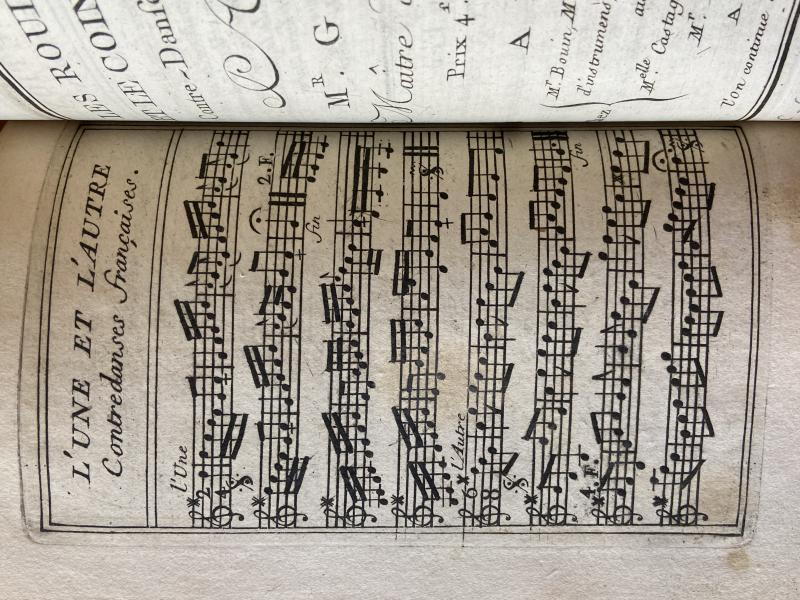 LES ROUL
ET LE COIN
Contre-Danse
Mr. G
Maître
Prix 4.f
A
Mr Bouin, M
d'instrumens
Melle Castag
Mr.
A
l'on continue
L'UNE ET L'AUTRE
Contredanses françaises.
l'Une
2
4
2.F.
fin
l'Autre
6
8
fin
4.F.